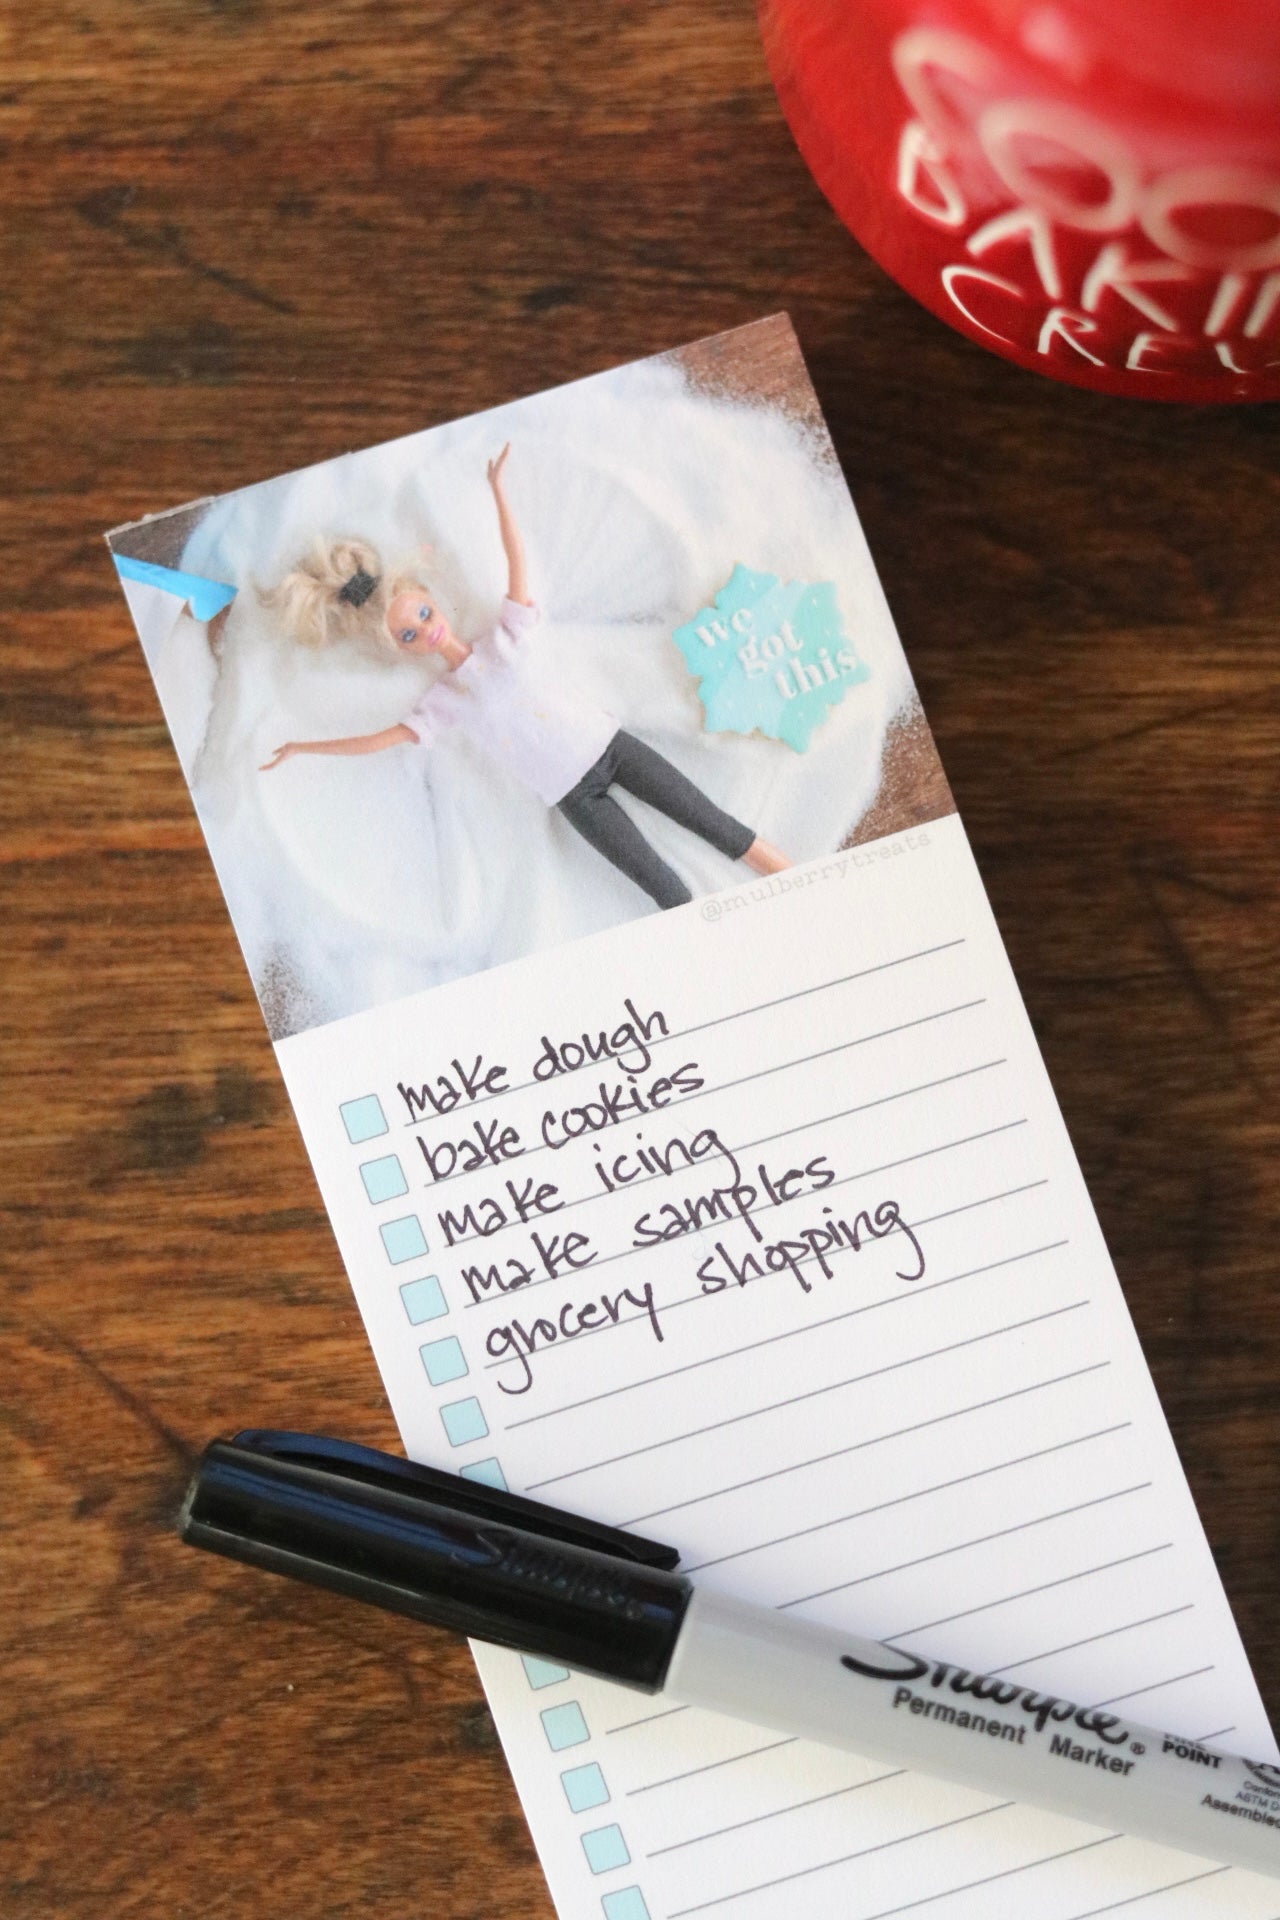 BAKIN
CREW
we
got
this
@mulberrytreats
make dough
bake cookies
make icing
make samples
grocery shopping
Sharpie
Sharpie®
Permanent Marker
POINT
ASTM D
Assembled